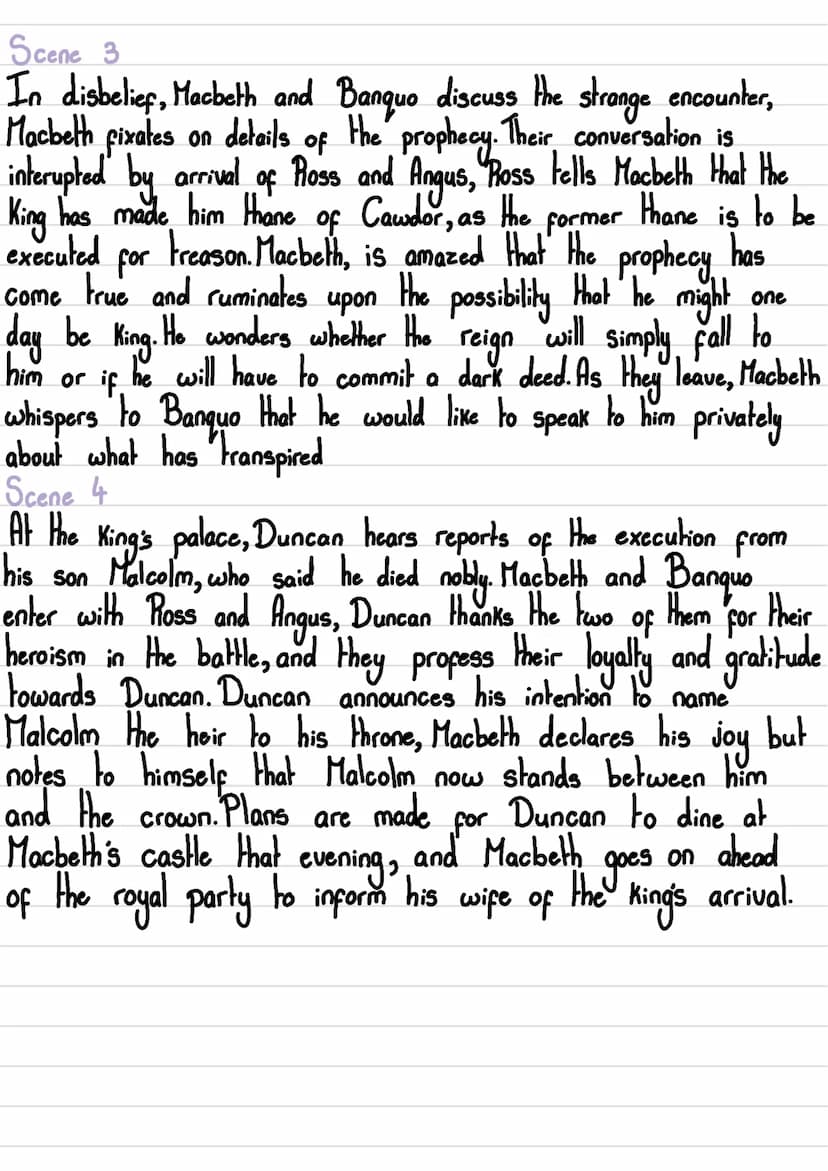 Scene 3
In disbelief, Macbeth and Banquo discuss the strange encounter,
Macbeth fixates on details of the prophecy. Their conversation is
interupted by arrival of Ross and Angus, Ross tells Macbeth that the
King has made him thane of Cawdor, as the former thane is to be
executed for treason. Macbeth, is amazed that the prophecy has
come true and ruminates upon the possibility that he might one
day be King. He wonders whether the reign will simply fall to
him or if he will have to commit a dark deed. As they leave, Macbeth
whispers to Banquo that he would like to speak to him privately
about what has transpired
Scene 4
At the King's palace, Duncan hears reports of the execution from
his son Malcolm, who said he died nobly. Macbeth and Banquo
enter with Ross and Angus, Duncan thanks the two of them for their
heroism in the battle, and they profess their loyalty and gratitude
towards Duncan. Duncan announces his intention to name
Malcolm the heir to his throne, Macbeth declares his joy but
notes to himself that Malcolm now stands between him
and the crown. Plans are made for Duncan to dine at
Macbeth's castle that evening, and Macbeth goes on ahead
of the royal party to inform his wife of the King's arrival.